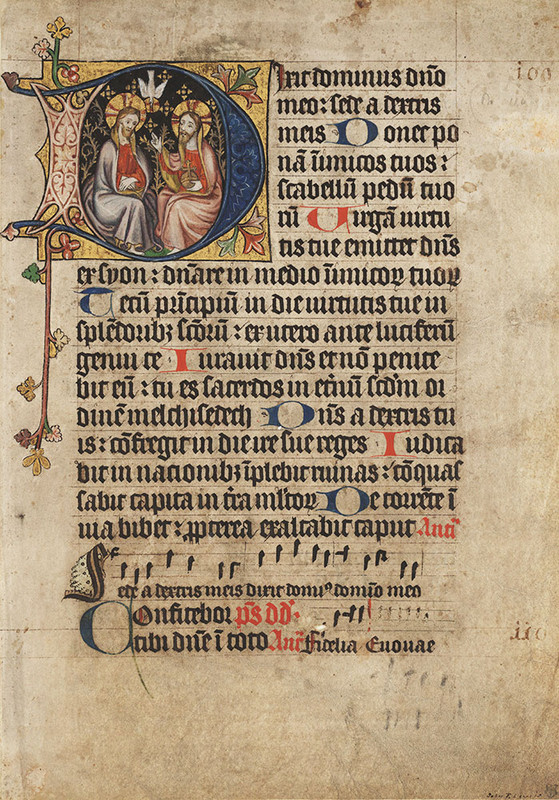 Dixit dominus dño
meo: sede a dextris
meis Donec po
nã ĩimicos tuos:
scabellũ pedũ tuo
rũ Uirgã uirtu
tis tue emittet dñs
ex syon: dñare in medio ĩimicoꝝ tuoꝝ
Tecũ prĩcipiũ in die uirtutis tue in
splẽdoribꝫ scõrũ: ex utero ante luciferũ
genui te Iurauit dñs et nõ penite
bit eũ: tu es sacerdos in et̃nũ scd̃m or
dinẽ melchisedech Dñs a dextris tu
is: cõfregit in die ire sue reges Iudica
bit in nacionibꝫ ĩplebit ruinas: cõquas
sabit capita in t̃ra ml̃toꝝ De torrẽte ĩ
uia bibet: ꝓpterea exaltabit caput Antͥ
Sede a dextris meis dixit dominꝰ domĩo meo
Confitebor pˢ dd:
tibi dñe ĩ toto Anͥ Fidelia Euouae
110